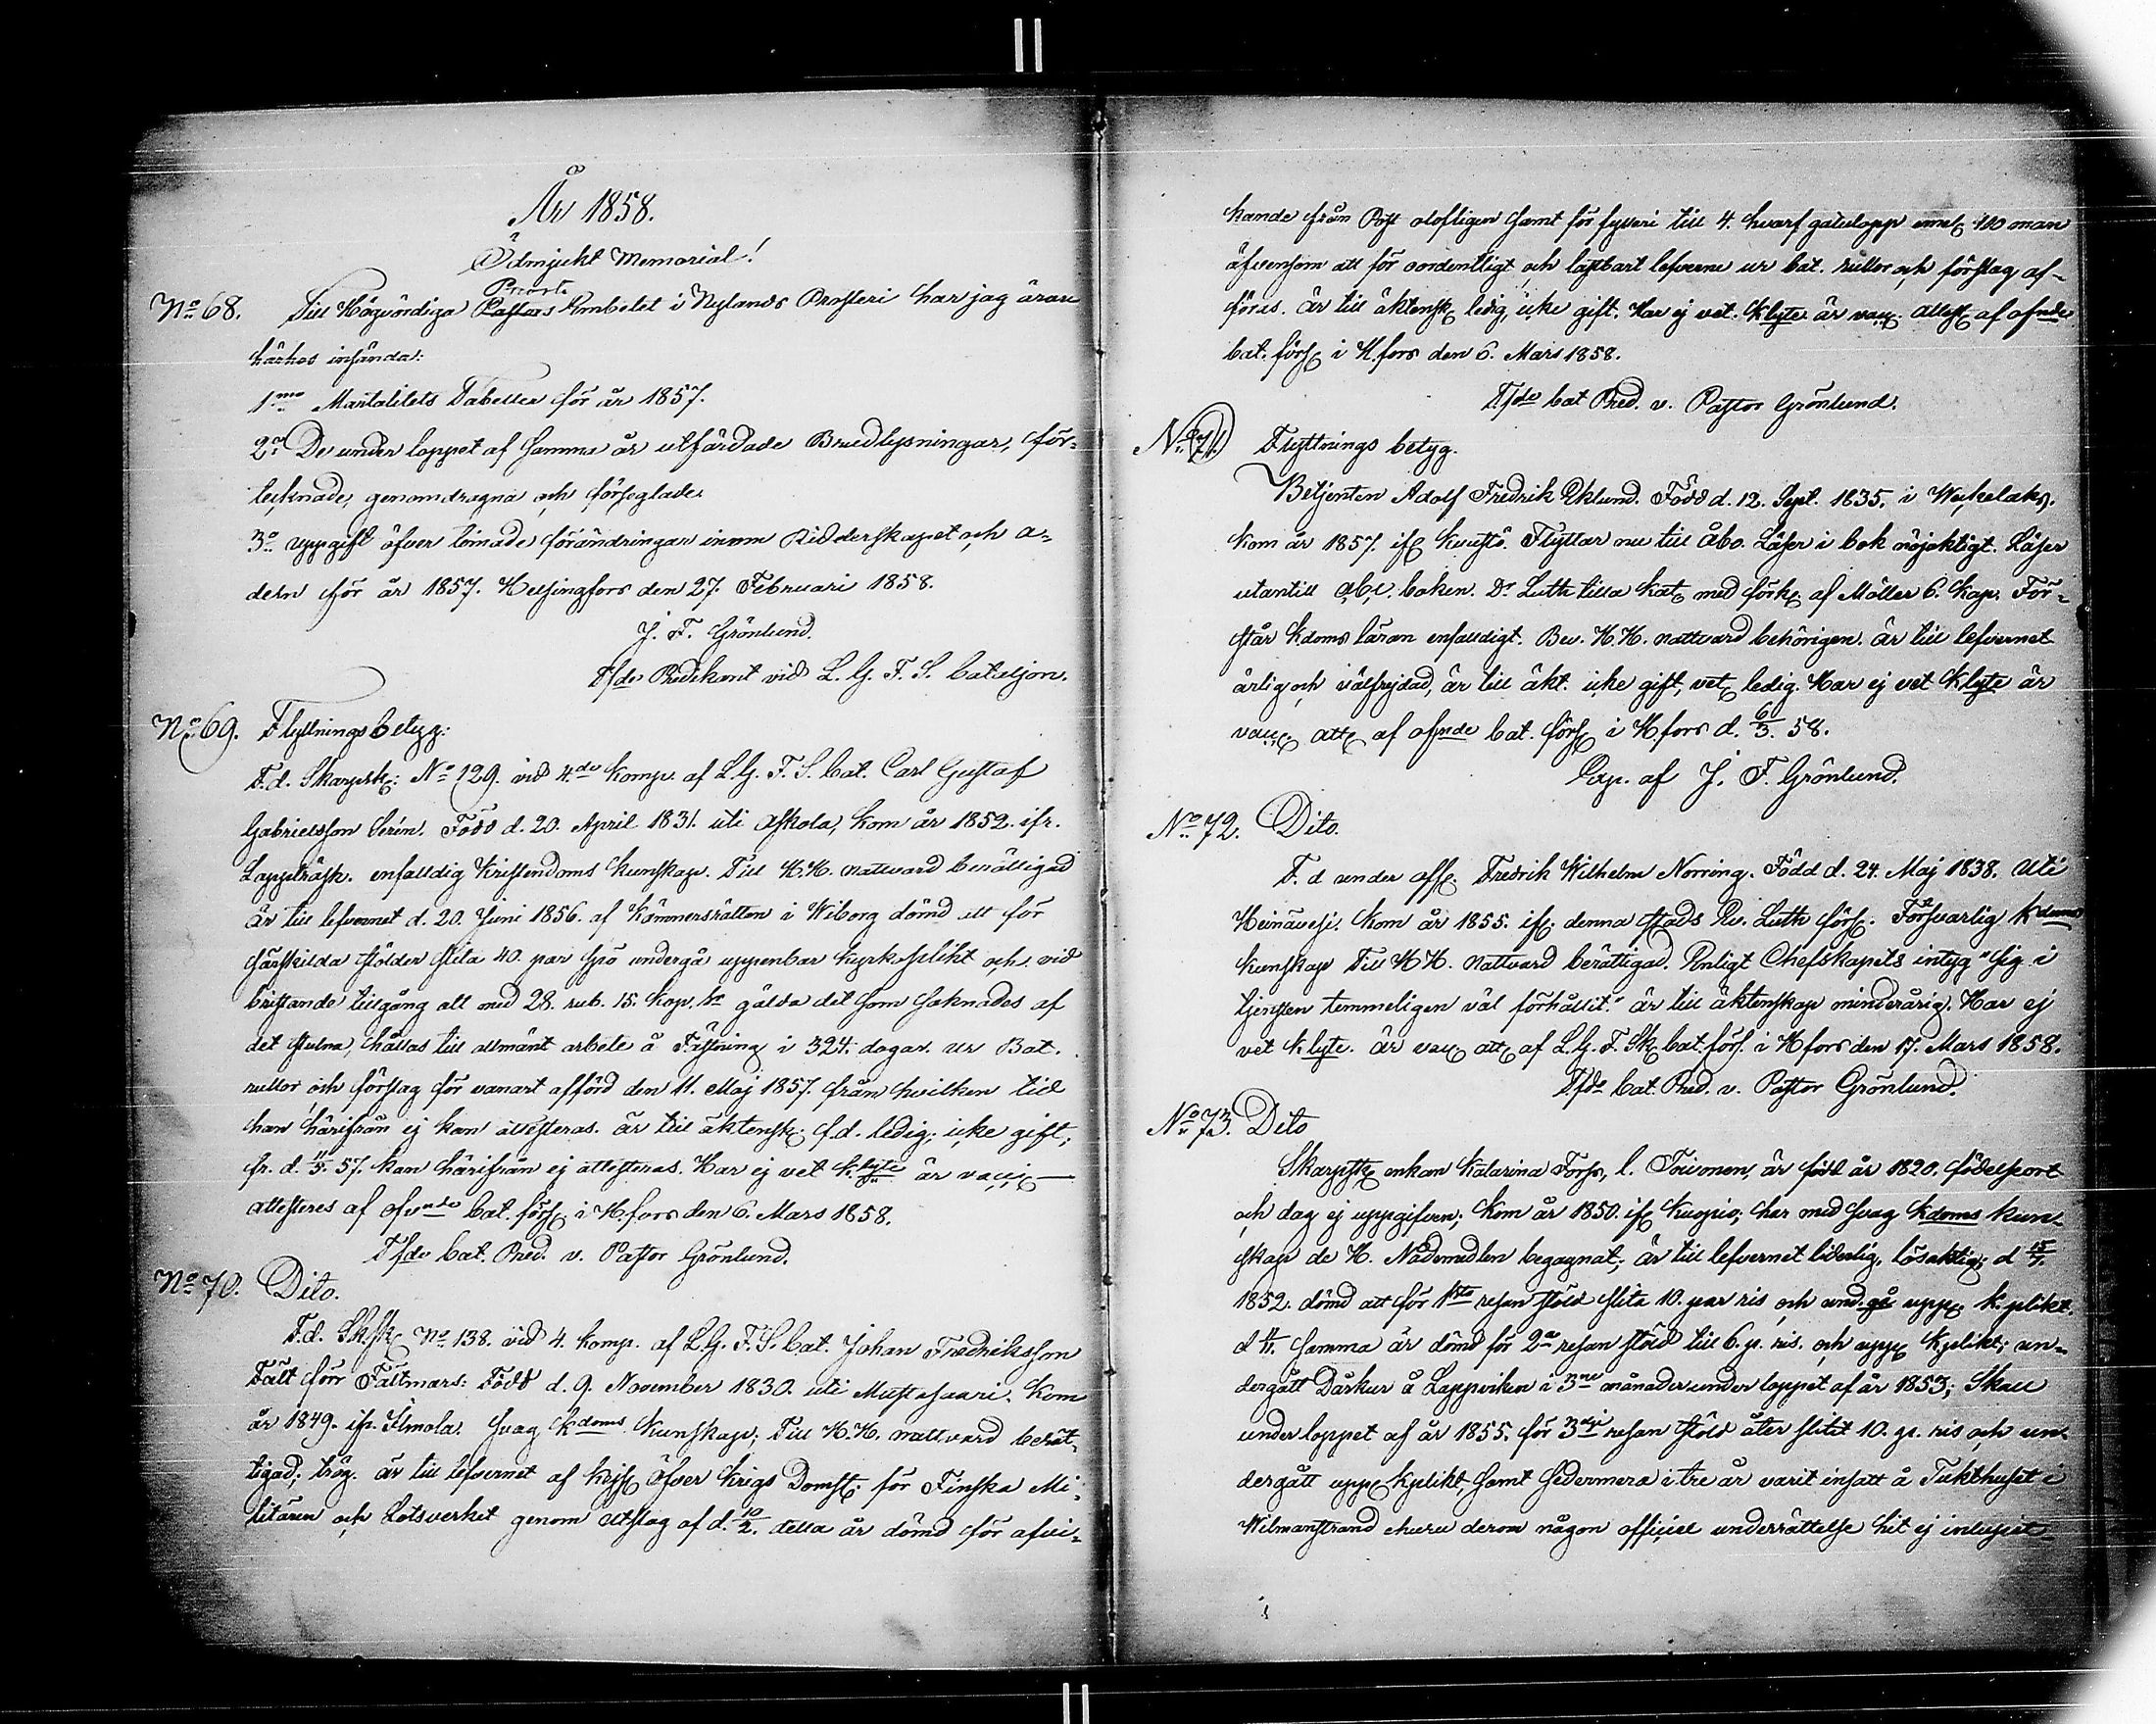 År 1858.
Ödmjukt Memorial!
Prosts
No 68. Till Högvördiga Pastors Embetet i Nylands Prosteri har jag äran
härhos insända:
1mo Mortalitets Tabellen för år 1857.
2o De under loppet af samma år utfärdade Brudlysningar, för-
tecknade, genomdragna och förseglade.
3o Uppgift öfver timade förändringar inom Ridderskapet och a-
deln för år 1857. Helsingfors den 27. Februari 1858.
J. F. Grönlund.
T.f.de Predikant vid L. G. F. S. bataljon.
No 69. Flyttningsbetyg:
F.d. Skarpsk: No 129. vid 4.de Komp. af L.G. F. S. bat. Carl Gustaf
Gabrielsson Serén. Född d. 20. April 1831. uti Askola, kom år 1852. ifr.
Lappträsk. enfalldig Kristendoms kunskap. Till H.H. nattvard berättigad
är till lefvernet d. 20. Juni 1856. af Kämnersrätten i Wiborg dömd att för
särskilda stölder slita 40. par spö undergå uppenbar kyrkoplikt och vid
bristande tillgång att med 28. rub. 15. kop. sr gälda det som saknades af
det stulna, hållas till allmänt arbete å Fästning i 324. dagar. ur Bat.
rullor och förslag för vanart afförd den 11. Maj 1857. från hvilken tid
han härifrån ej kan attesteras. är till äktensk: f.d. ledig; icke gift;
fr. d. 11/5. 57. kan härifrån ej attesteras. Har ej vet k. lyte är vacc:
attesteras af ofvnde bat. förs: i H.fors den 6. Mars 1858.
T.f.de bat. Pred. v. Pastor Grönlund.
No 70. Dito.
F.d. Sk.sk: No 138. vid 4. komp. af L.G. F. S. bat. Johan Fredriksson
Fält förr Fältmars: Född d. 9. November 1830. uti Mustasaari. Kom
år 1849. ifr. Ilmola. Svag Kdoms Kunskap; Till H.H. nattvard berät-
tigad; trög. är till lefvernet af Kejs: Öfver Krigs Domst: för Finska Mi-
litären och Lotsverket genom utslag af d. 10/2. detta år dömd för afvi-
kande från Post olofligen samt för fylleri till 4. hvarf gatulopp emel: 100 man
äfvensom att för oordentligt och lastbart lefverne ur bat. rullor och förslag af-
föras. Är till äktensk: ledig, icke gift. Har ej vet. K lyte är vacc: attest: af ofnde
bat. förs: i H.fors den 6. Mars 1858.
T.f.de bat Pred. v. Pastor Grönlund.
No 71. Flyttnings betyg.
Betjenten Adolf Fredrik Eklund. Född d. 12. Sept. 1835. i Weckelaks.
kom år 1857. ifr: Kuustö. Flyttar nu till Åbo. Läser i bok nöjaktigt. Läser
utantill abc. boken. Dr Luth lilla kat: med förk: af Möller 6. kap. För-
står Kdoms läran enfalldigt. Bev. H.H. nattvard behörigen. är till lefvernet
ärlig och välfrejdad, är till äkt. icke gift, vet: ledig. Har ej vet K lyte är
vacc: att: af ofnde bat. förs: i H.fors d. 6/3. 58.
Exp. af J. F. Grönlund.
No 72. Dito.
F. d under off: Fredrik Wilhelm Norring. Född d. 24. Maj 1838. Uti
Heinävesi. Kom år 1855. ifr: denna stads Ev. Luth förs: Försvarlig Kdoms
kunskap Till H H. Nattvard berättigad. Enligt Chefskapets intyg "sig i
tjensten temmeligen väl förhållit." är till äktenskap minderårig. Har ej
vet k lyte. är vacc: att: af L.G. F. Sk: bat. förs. i H fors den 17. Mars 1858.
T.f.de bat. Pred. v. Pastor Grönlund.
No 73. Dito
Skarpsk: enkan Katarina Forss, l. Toivonen, är född år 1820. födelseort
och dag ej uppgifven; kom år 1850. ifr: Kuopio; har med svag kdoms kun-
skap de H. Nådemedlen begagnat; är till lefvernet liderlig, lösaktig; d 15/7.
1852. dömd att för 1sta resan stöld slita 10. par ris och und. gå upp: k. plikt.
d samma år dömd för 2a resan stöld till 6. p. ris. och upp: k.plikt; un-
dergått Dårkur å Lappviken i 3ne månader under loppet af år 1853; Skall
under loppet af år 1855. för 3dje resan stöld åter slitit 10. p. ris och un-
dergått upp: k.plikt, samt sedermera i tre år varit insatt å Tukthuset i
Wilmanstrand ehuru derom någon officiel underrättelse hit ej inlupit